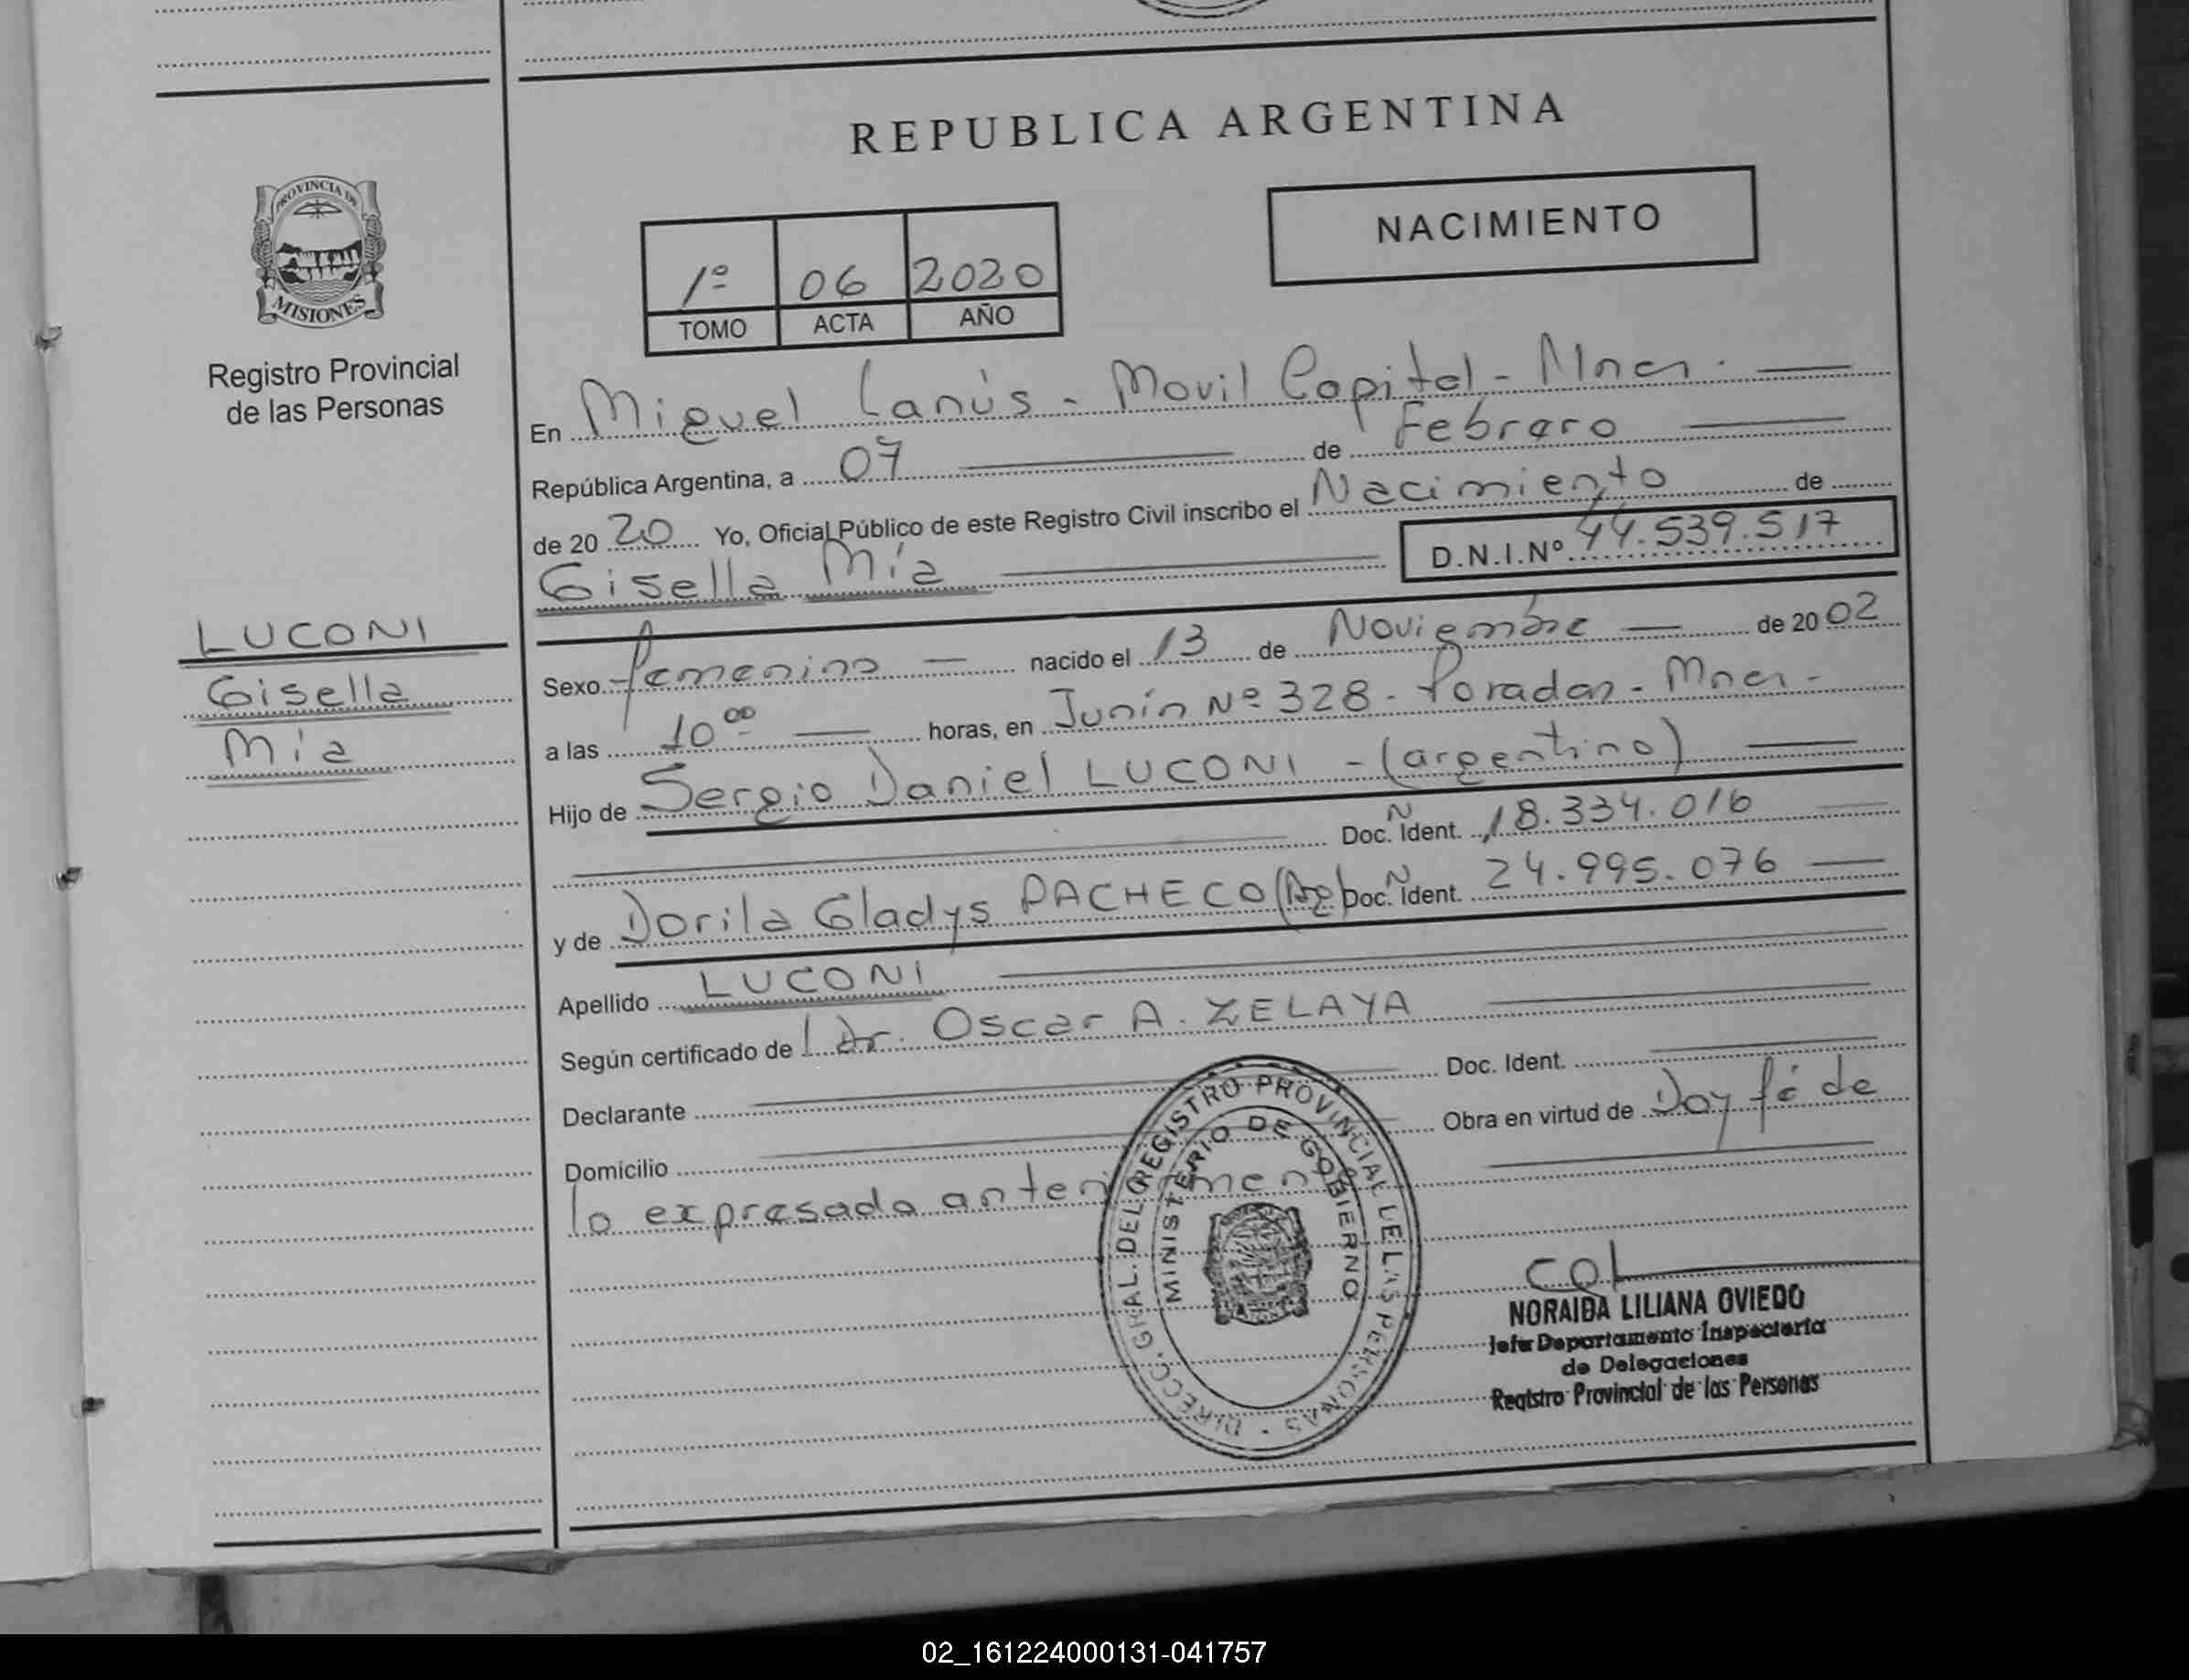 REPUBLICA ARGENTINA
NACIMIENTO
1º 06 2020
TOMO ACTA AÑO
PROVINCIA DE
MISIONES
Registro Provincial
de las Personas
En Miguel Lanús - Movil Capital - Mnes.
República Argentina, a 07 de Febrero
de 20 20 Yo, Oficial Público de este Registro Civil inscribo el Nacimiento de
Gisella Mía D.N.I.Nº 44.539.517
LUCONI
Gisella
Mía
Sexo femenino nacido el 13 de Noviembre de 20 02
a las 10 00 horas, en Junín Nº 328 - Posadas - Mnes -
Hijo de Sergio Daniel LUCONI - (argentino)
Doc. Ident. 18.334.016
y de Dorila Gladys PACHECO (Ag) Doc. Ident. 24.995.076
Apellido LUCONI
Según certificado de Dr. Oscar A. ZELAYA
Declarante Doc. Ident.
Domicilio Obra en virtud de Doy fé de
lo expresado anteriormente
DIRECC. GRAL. DEL REGISTRO PROVINCIAL DE LAS PERSONAS
MINISTERIO DE GOBIERNO
NORAIDA LILIANA OVIEDO
Jefe Departamento Inspectoria
de Delegaciones
Registro Provincial de las Personas
02_161224000131-041757